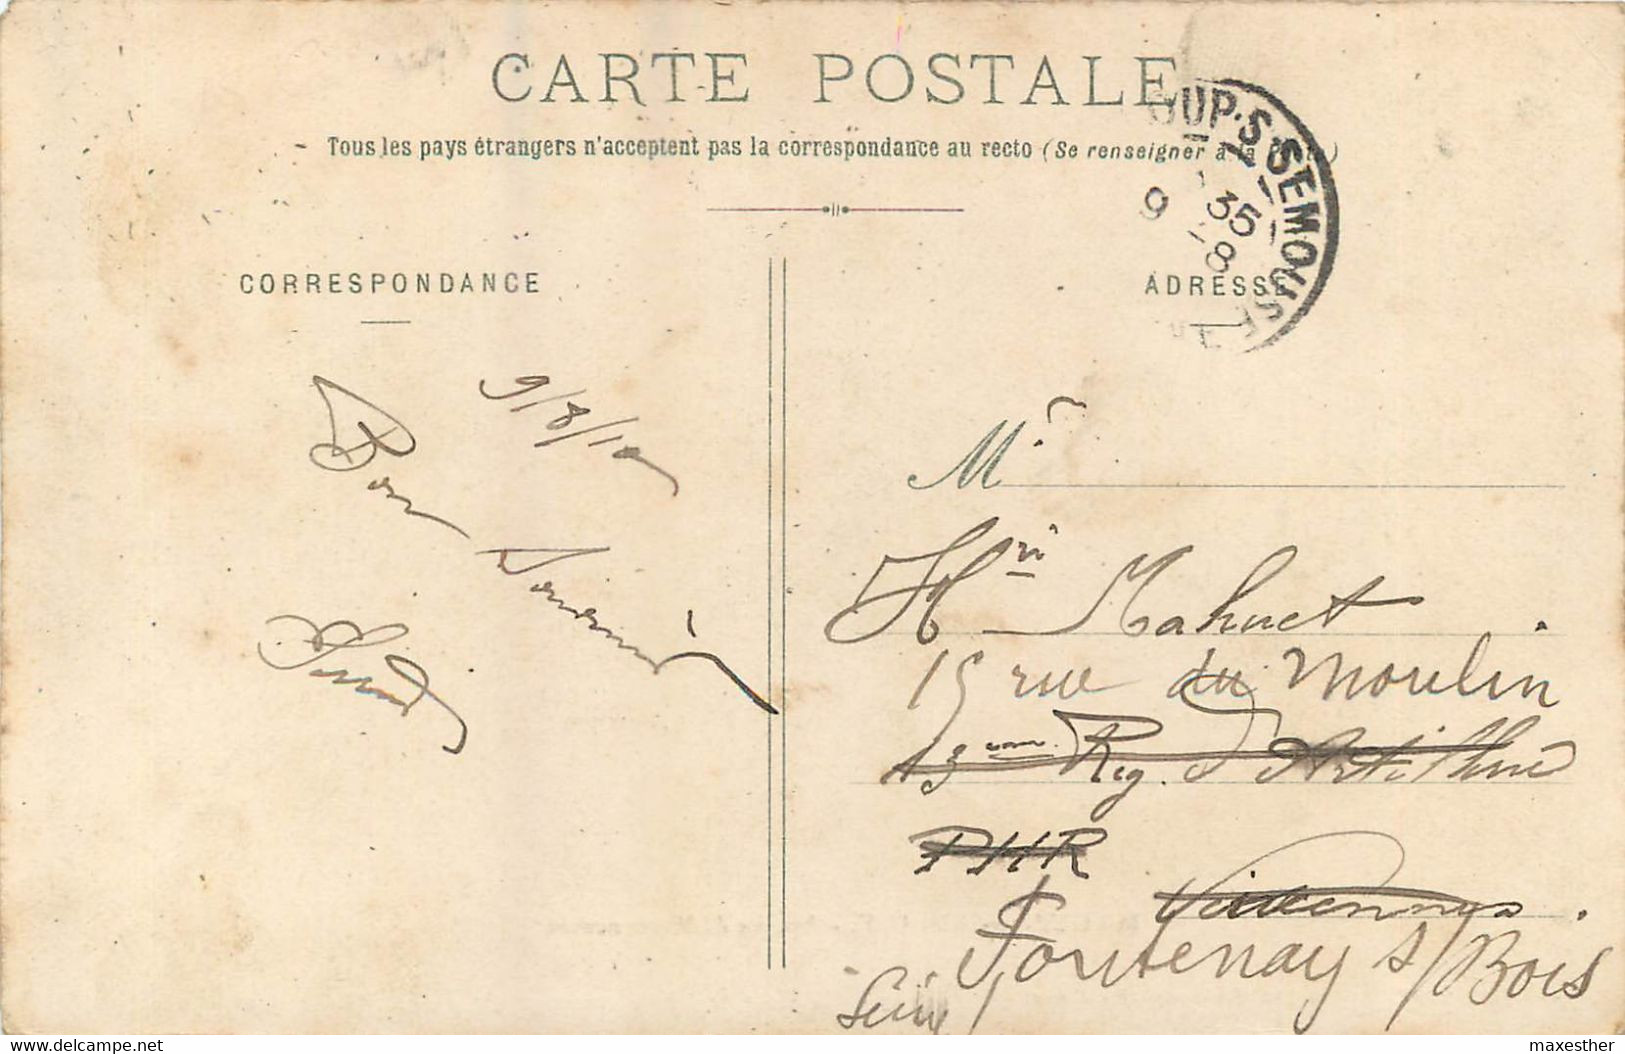 CARTE POSTALE
Tous les pays étrangers n'acceptent pas la correspondance au recto (Se renseigner à la Poste)
OUP·S·SEMOUSE
35
9 8
CORRESPONDANCE
ADRESSE
9/8/10
Bon Souvenir
M.r
Hri Mahuet
15 rue du Moulin
13eme Reg. d'Artillerie
PHR
Vincennes.
Fontenay s/Bois
Seine
maxesther